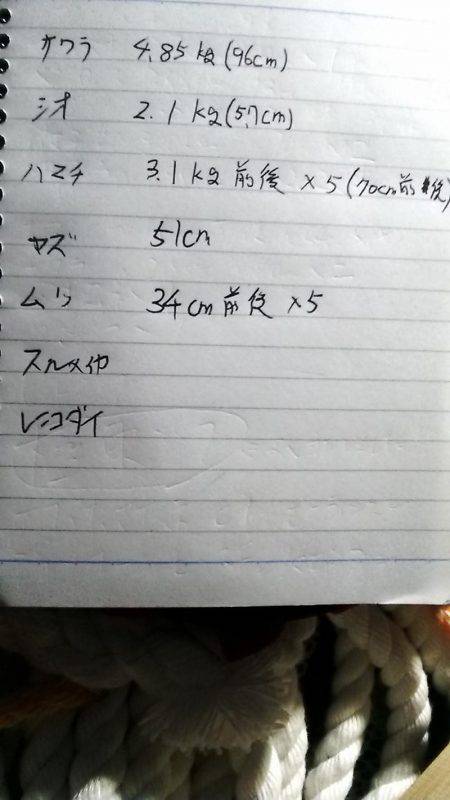 サワラ 4.85kg(96cm)
シオ 2.1kg(57cm)
ハマチ 3.1kg前後 ×5(70cm前後)
ヤズ 51cm
ムツ 34cm前後 ×5
スルメイカ
レンコダイ